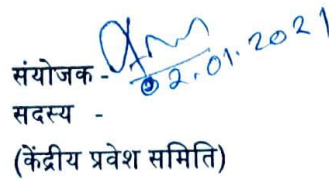 संयोजक -
02.01.2021
सदस्य -
(केंद्रीय प्रवेश समिति)